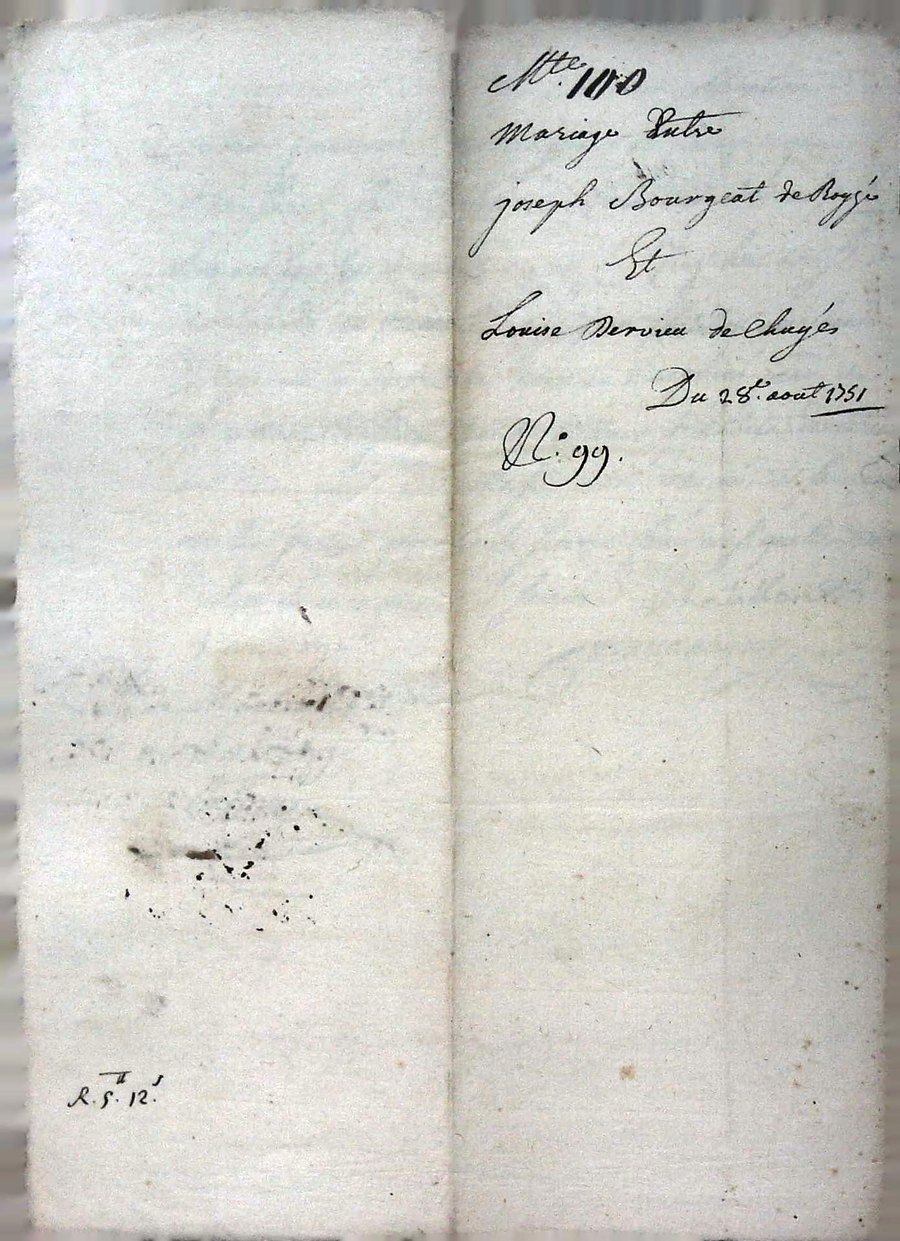 Mte. 100
Mariage Entre
joseph Bourgeat de Royzé
Et
Louise Dervieu de Chuyés
Du 28e. aout 1751
N.° 99.
R. 5.ᵗᵗ 12.ˢ